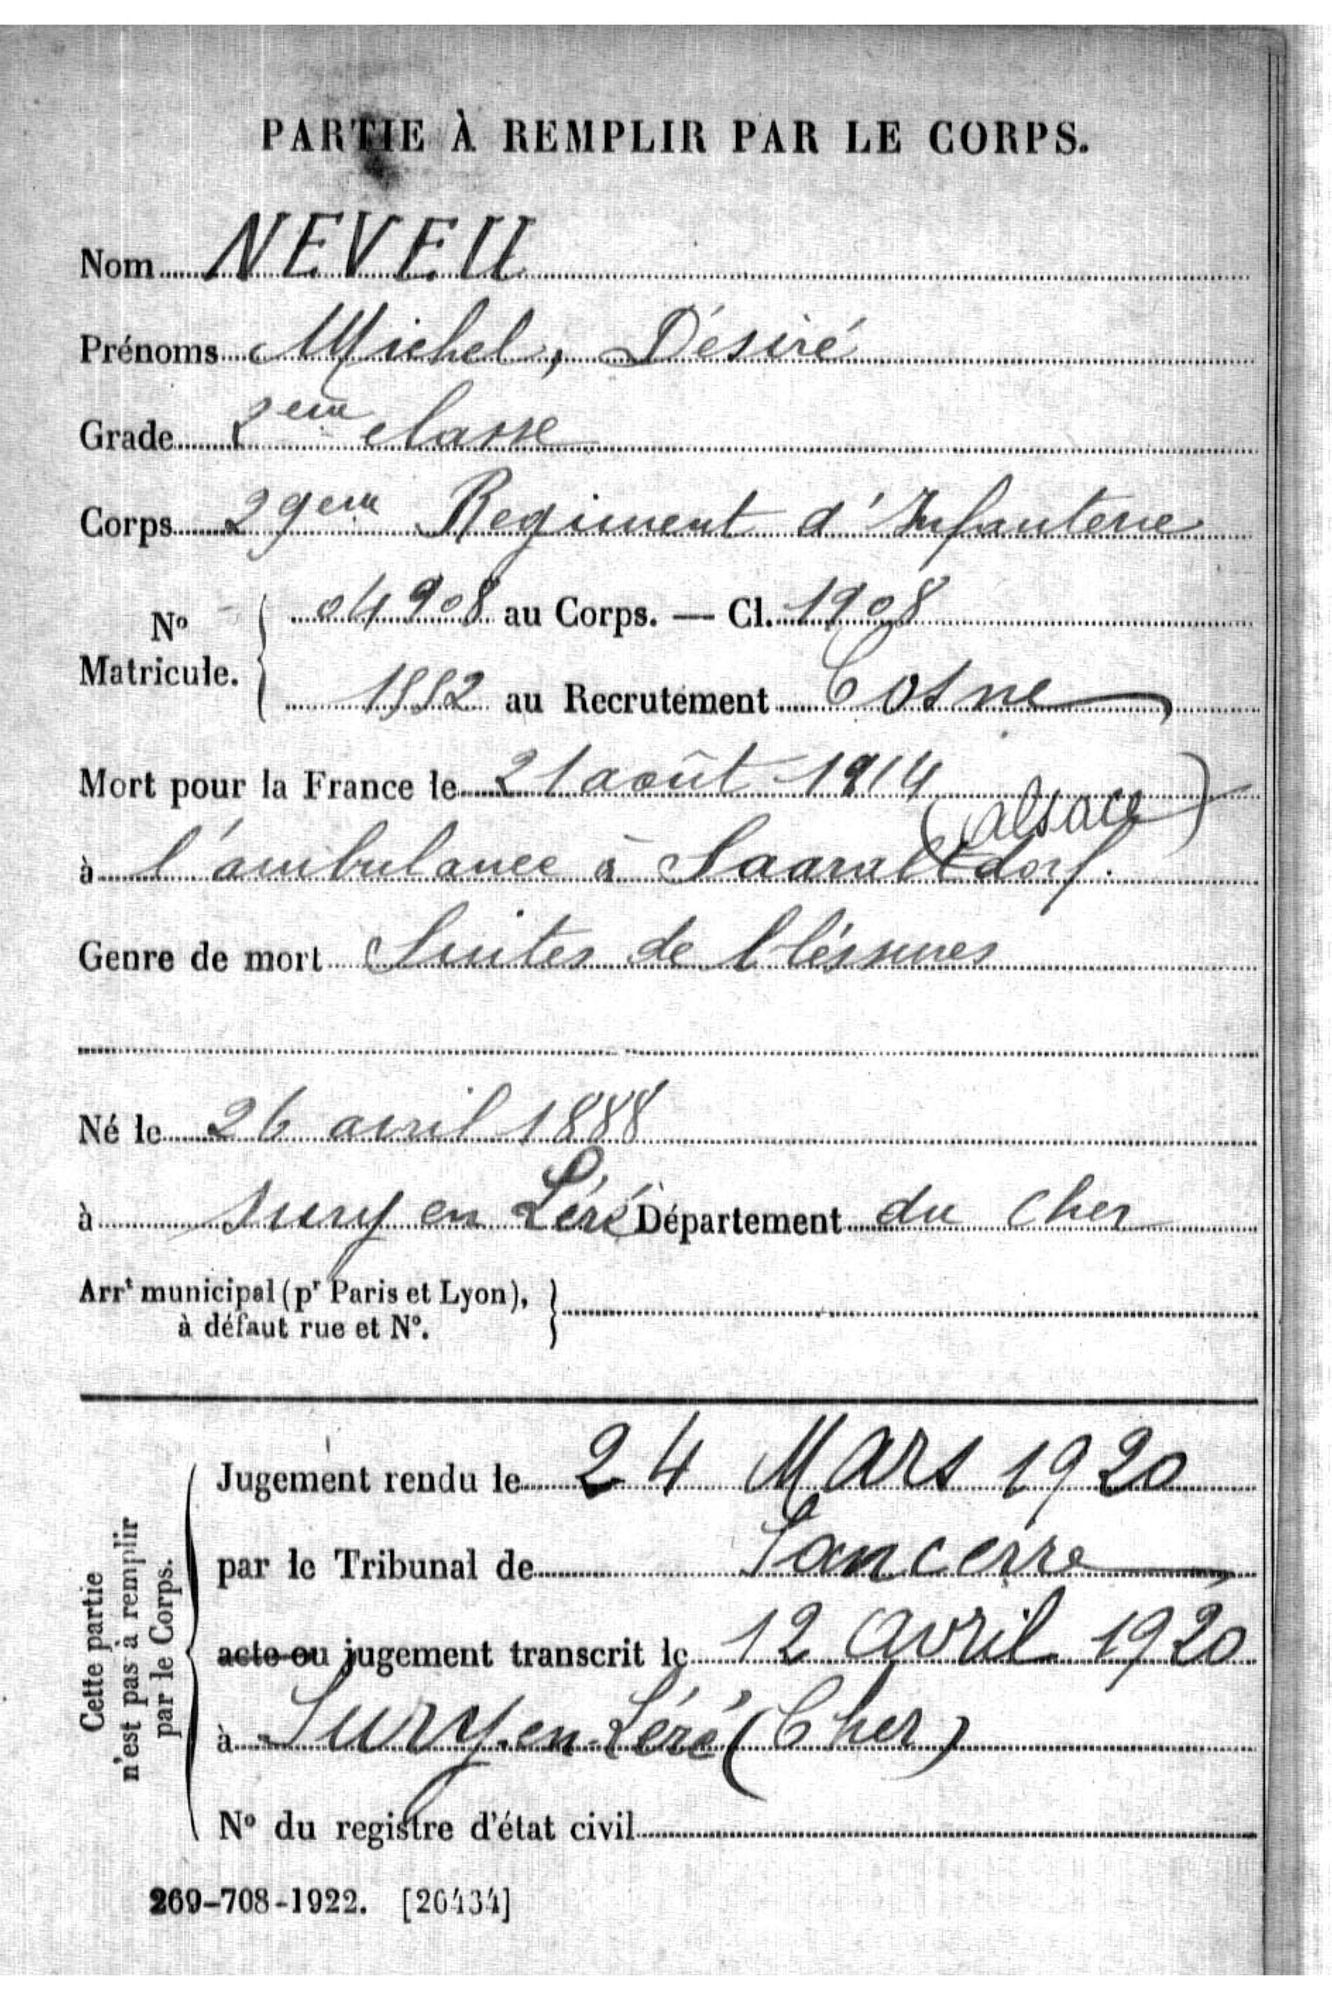 PARTIE À REMPLIR PAR LE CORPS.
Nom NEVEU
Prénoms Michel, Désiré
Grade 2eme classe
Corps 29eme Regiment d'Infanterie
No Matricule. 04908 au Corps. — Cl. 1908
1552 au Recrutement Cosne
Mort pour la France le 21 août 1914
(alsace)
à l'ambulance à
Genre de mort Suites de bléssures
Né le 26 avril 1888
à Sury en Léré Département du Cher
Arrt municipal (pr Paris et Lyon),
à défaut rue et No.
Cette partie
n'est pas à remplir
par le Corps.
Jugement rendu le 24 Mars 1920
par le Tribunal de Sancerre
acte ou jugement transcrit le 12 avril 1920
à Sury-en-Léré (Cher)
No du registre d'état civil
269-708-1922. [26434]